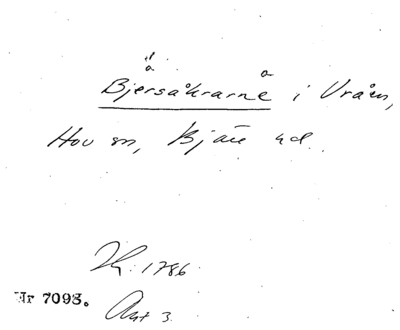 ä a
Bjersåkrarne i Vråen,
Hov sn, Bjäre hd.
1786
Nr 7093.
Akt 3.